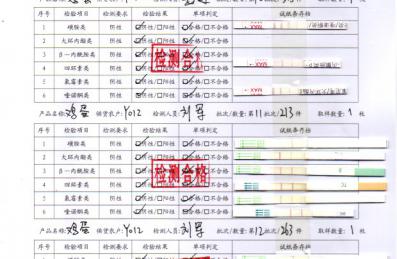 序号 检验项目 检测要求 检验结果 单项判定 试纸条存档
1 磺胺类 阴性 ☑阴性/☐阳性 ☑合格/☐不合格
2 大环内酯类 阴性 ☑阴性/☐阳性 ☑合格/☐不合格
3 β-内酰胺类 阴性 ☑阴性/☐阳性 ☑合格/☐不合格
4 四环素类 阴性 ☑阴性/☐阳性 ☑合格/☐不合格
5 氟霉素 阴性 ☑阴性/☐阳性 ☑合格/☐不合格
6 喹诺酮类 阴性 ☑阴性/☐阳性 ☑合格/☐不合格
检测合格
产品名称: 鸡蛋 供货农户: Y012 检测人员: 刘军 批次/数量: 第11批次/213件 取样数量: 1 枚
序号 检验项目 检测要求 检验结果 单项判定 试纸条存档
1 磺胺类 阴性 ☑阴性/☐阳性 ☑合格/☐不合格
2 大环内酯类 阴性 ☑阴性/☐阳性 ☑合格/☐不合格
3 β-内酰胺类 阴性 ☑阴性/☐阳性 ☑合格/☐不合格
4 四环素类 阴性 ☑阴性/☐阳性 ☑合格/☐不合格
5 氟霉素类 阴性 ☑阴性/☐阳性 ☑合格/☐不合格
6 喹诺酮类 阴性 ☑阴性/☐阳性 ☑合格/☐不合格
检测合格
产品名称: 鸡蛋 供货农户: Y012 检测人员: 刘军 批次/数量: 第12批次/263件 取样数量: 1 枚
序号 检验项目 检测要求 检验结果 单项判定 试纸条存档
1 磺胺类 阴性 ☑阴性/☐阳性 ☑合格/☐不合格